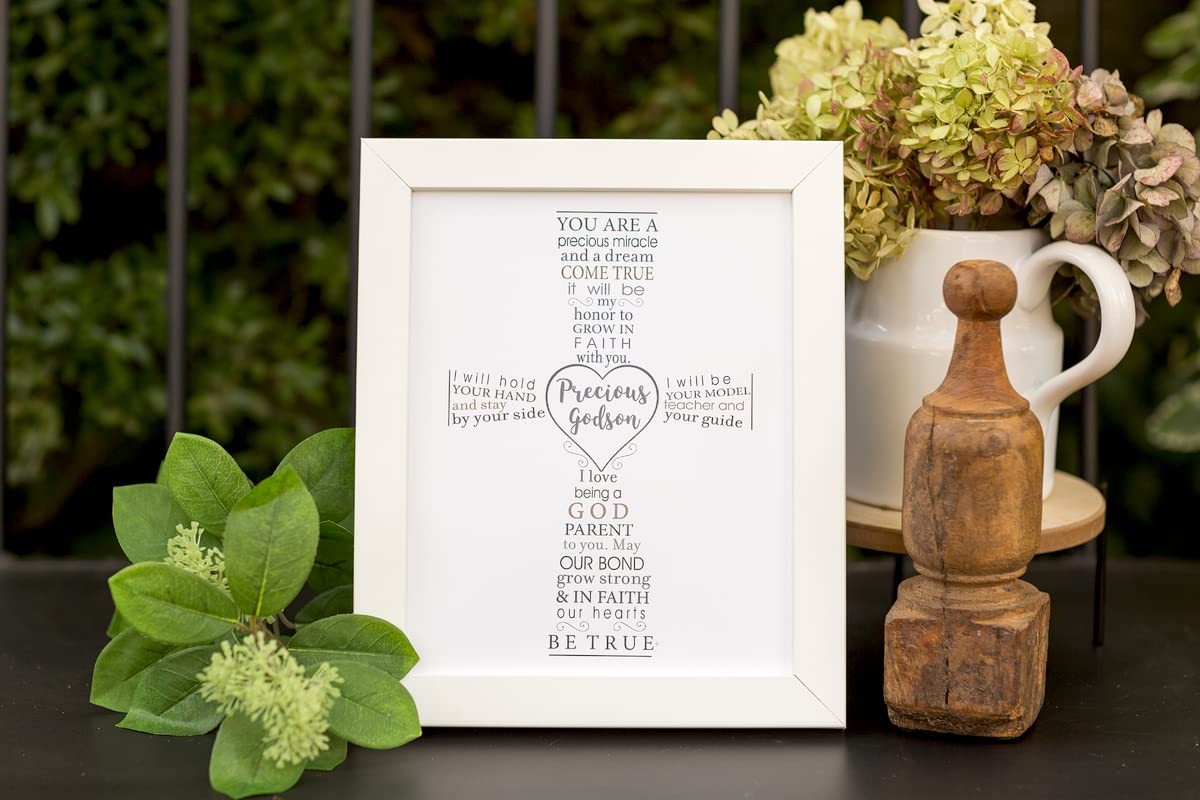 YOU ARE A
precious miracle
and a dream
COME TRUE
it will be
my
honor to
GROW IN
FAITH
with you.
I will hold
YOUR HAND
and stay
by your side
Precious
Godson
I will be
YOUR MODEL
teacher and
your guide
I love
being a
GOD
PARENT
to you. May
OUR BOND
grow strong
& IN FAITH
our hearts
BE TRUE